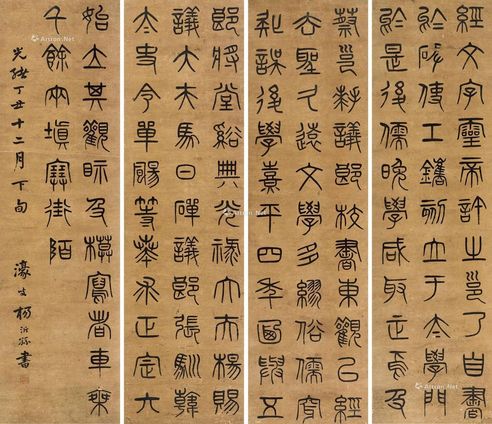 經文字靈帝許之邕乃自書
於碑使工鐫刻立于太學門
於是後儒晚學咸取正焉及
蔡邕拜議郎校書東觀以經
去聖久遠文學多繆俗儒穿
疑誤後學熹平四年與五
郎將堂谿典光祿大夫楊賜
議大夫馬日磾議郎張馴韓
太史令單颺等奏求正定六
始立其觀眎及模寫者車乘
千餘兩填塞街陌
光緒丁丑十二月下旬 濠叟楊沂孫書